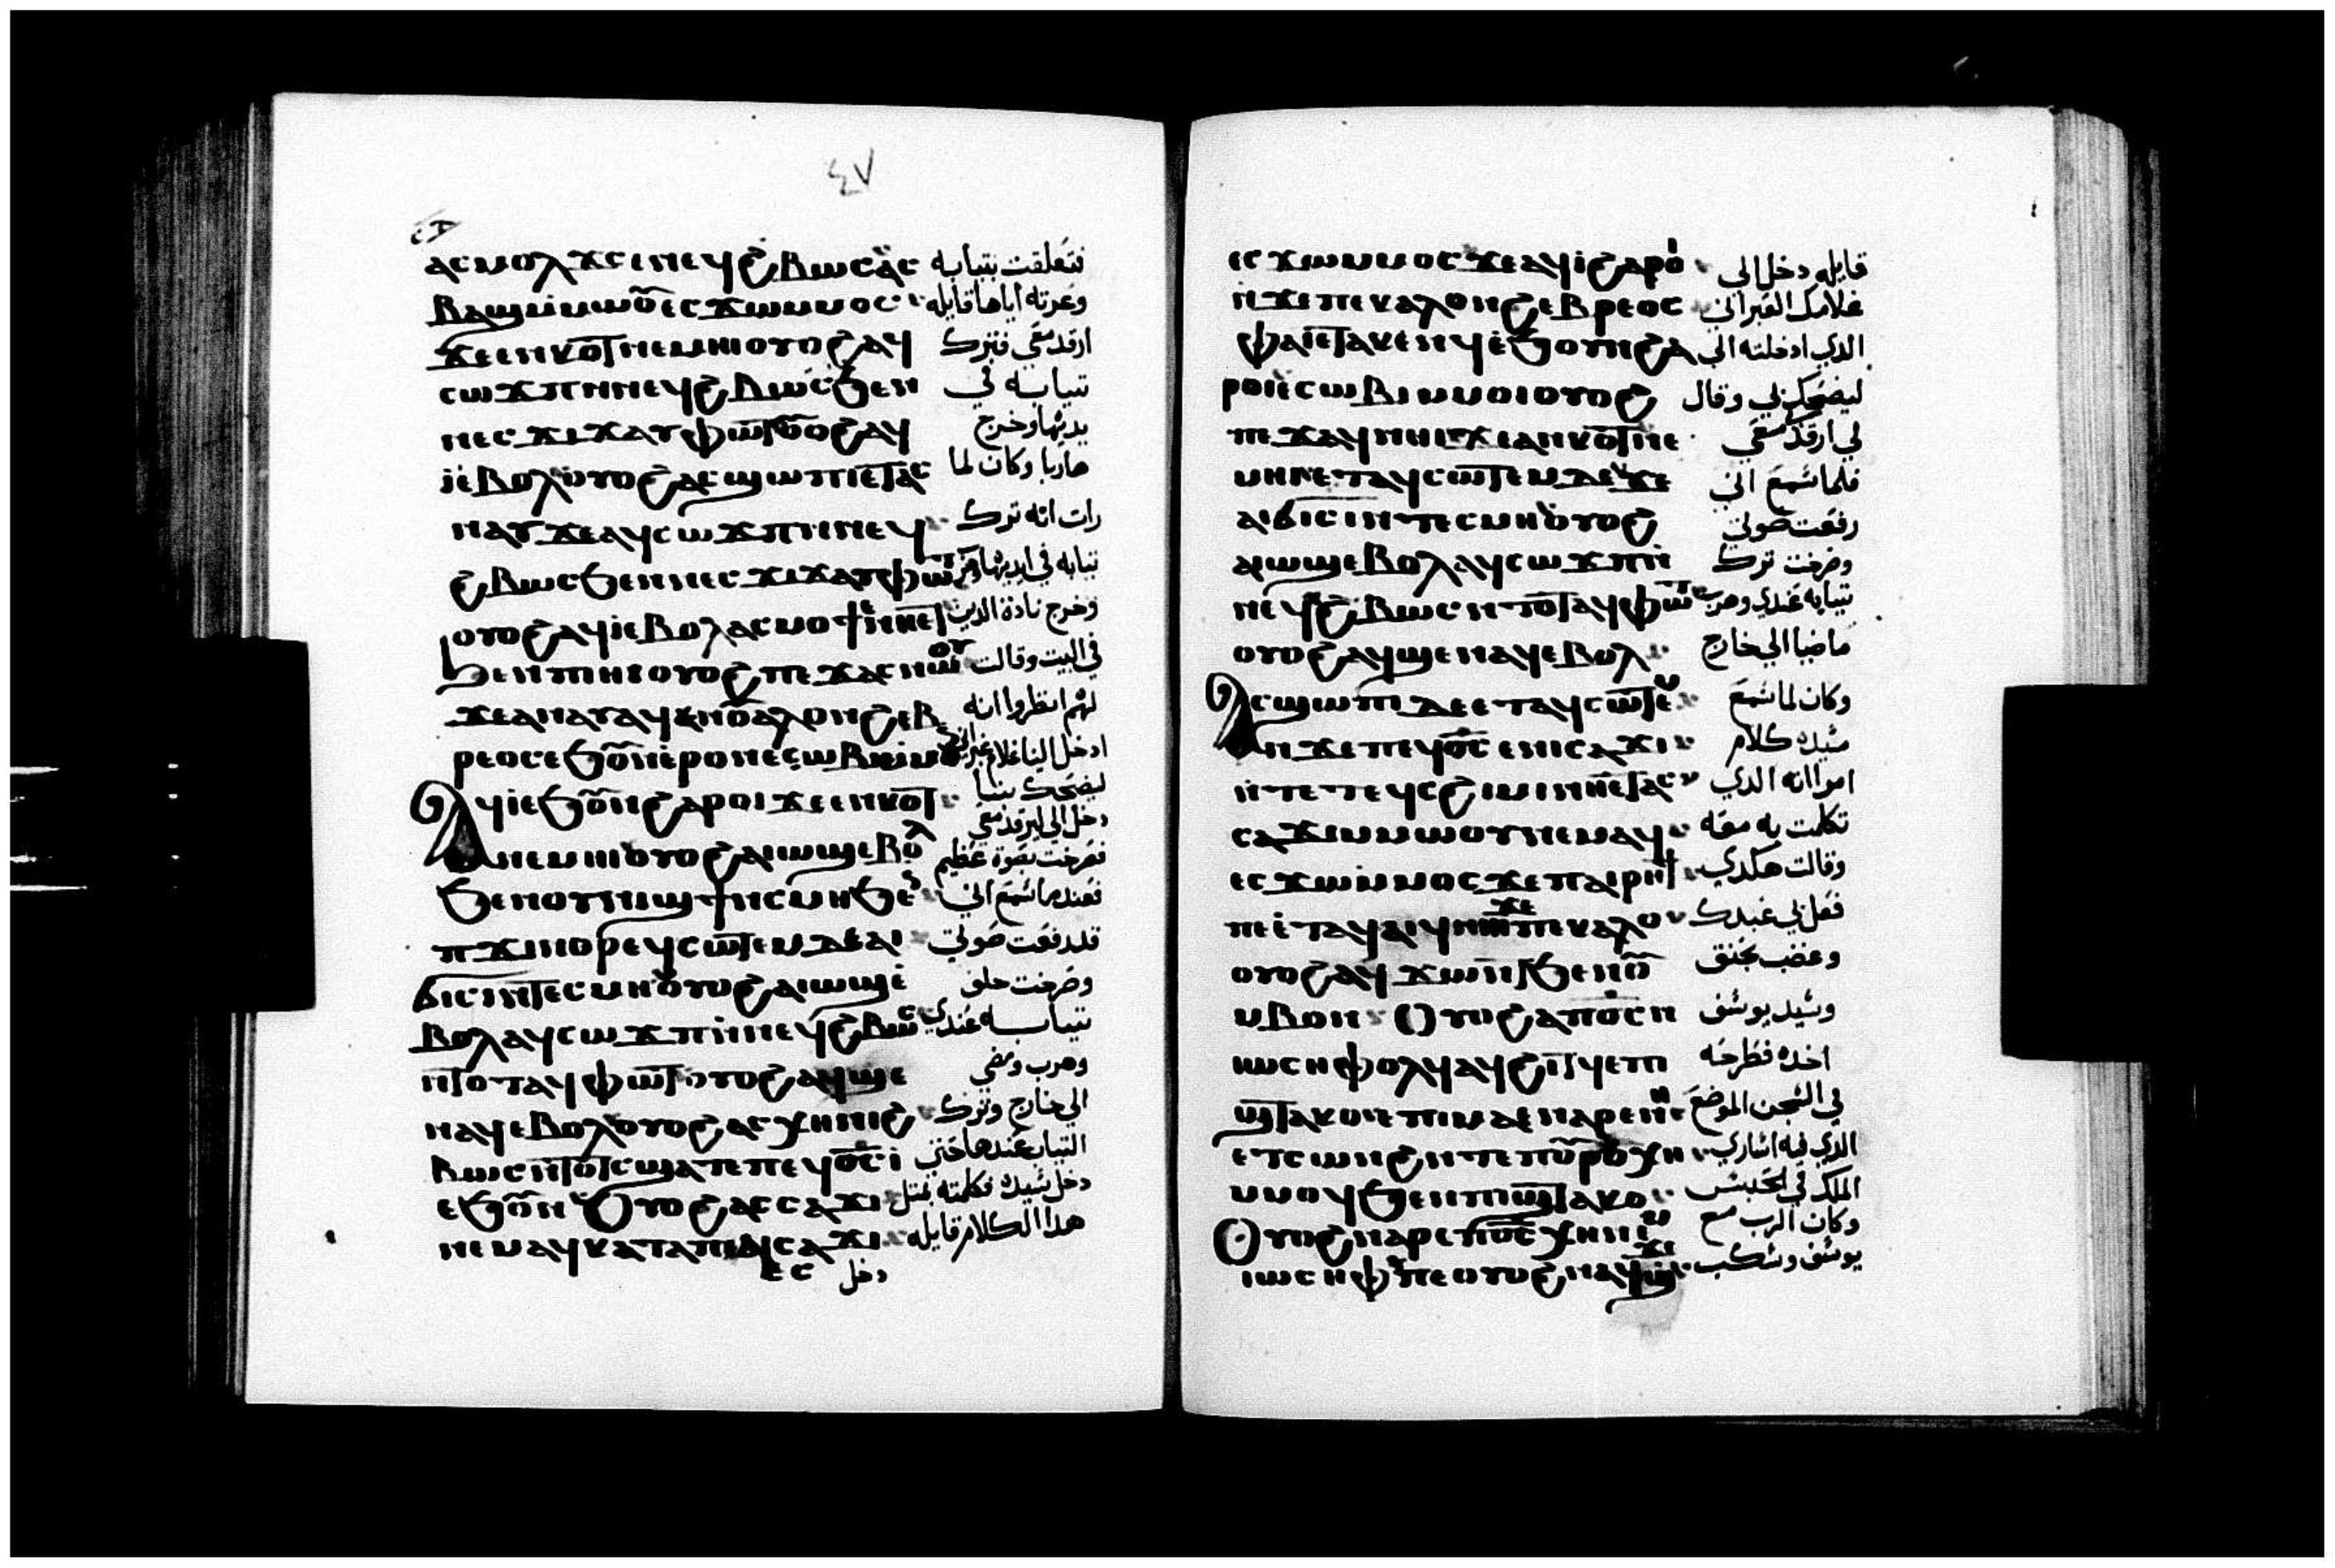 ٤٧
ⲁⲥⲙⲟⲗϫⲥ ⲉⲛⲉϥϩⲃⲱⲥ ⲁⲥ فتعلقت بتيابه
ⲃⲁϣϥ ⲙⲙⲱⲟⲩ ⲉⲥϫⲱ ⲙⲙⲟⲥ وعرته اياها قايله
ϫⲉ ⲉⲛⲕⲟⲧ ⲛⲉⲙⲏⲓ ⲟⲩⲟϩ ⲁϥ ارقد معي فترك
ⲥⲱϫⲡ ⲛⲛⲉϥϩⲃⲱⲥ ϧⲉⲛ تيابه في
ⲛⲉⲥϫⲓϫ ⲁϥⲫⲱⲧ ⲟⲩⲟϩ ⲁϥ يديها وخرج
ⲓ ⲉⲃⲟⲗ ⲟⲩⲟϩ ⲁⲥϣⲱⲡⲓ ⲉⲧⲁⲥ هاربا وكان لما
ⲛⲁⲩ ϫⲉ ⲁϥⲥⲱϫⲡ ⲛⲛⲉϥ رات انه ترك
ϩⲃⲱⲥ ϧⲉⲛ ⲛⲉⲥϫⲓϫ ⲁϥⲫⲱⲧ تيابه في ايديها
ⲟⲩⲟϩ ⲁϥⲓ ⲉⲃⲟⲗ ⲁⲥⲙⲟⲩϯ ⲉⲛⲏⲉⲧ وخرج نادة الدين
ϧⲉⲛ ⲡⲓⲏⲓ ⲟⲩⲟϩ ⲡⲉϫⲁⲥ ⲛⲱⲟⲩ في البيت وقالت
ϫⲉ ⲁⲛⲁⲩ ⲁϥⲉⲛ ⲟⲩⲁⲗⲟⲩ ⲛϩⲉⲃ لهم انظروا انه
ⲣⲉⲟⲥ ⲉϧⲟⲩⲛ ⲉⲣⲟⲛ ⲉⲥⲱⲃⲓ ⲙⲙⲟⲛ ادخل الينا غلام عبراني
ⲁϥⲓ ⲉϧⲟⲩⲛ ϩⲁⲣⲟⲓ ϫⲉ ⲉⲛⲕⲟⲧ ليضحك بنا
ⲛⲉⲙⲏⲓ ⲟⲩⲟϩ ⲁⲓⲱϣ ⲉⲃⲟⲗ دخل الي ليرقد معي فصرخت بصوة عظيم
ϧⲉⲛ ⲟⲩⲛⲓϣϯ ⲛⲥⲙⲏ ϧⲉⲛ فعندما سمع اني
ⲡϫⲓⲛⲑⲣⲉϥⲥⲱⲧⲉⲙ ϫⲉ ⲁⲓ قد رفعت صوتي
ϭⲓⲥⲓ ⲛⲧⲉⲥⲙⲏ ⲟⲩⲟϩ ⲁⲓⲱϣ ⲉ وصرخت خلف
ⲃⲟⲗ ⲁϥⲥⲱϫⲡ ⲛⲛⲉϥϩⲃⲱⲥ تيابه عندي
ⲛⲧⲟⲧ ⲁϥⲫⲱⲧ ⲟⲩⲟϩ ⲁϥϣⲉ وهرب ومضي
ⲛⲁϥ ⲉⲃⲟⲗ ⲟⲩⲟϩ ⲁⲥⲭⲏ ⲛⲓϩ الي خارج وترك
ⲃⲱⲥ ⲛⲧⲟⲧⲥ ϣⲁⲧⲉ ⲡⲉϥϭⲥ ⲓ التياب عندها حتي
ⲉϧⲟⲩⲛ ⲟⲩⲟϩ ⲁⲥⲥⲁϫⲓ دخل سيده فكلمته بمتل
ⲛⲉⲙⲁϥ ⲕⲁⲧⲁ ⲡⲁⲓⲥⲁϫⲓ هدا الكلام قايله
ⲉⲥ دخل
ⲉⲥϫⲱ ⲙⲙⲟⲥ ϫⲉ ⲁϥⲓ ϩⲁⲣⲟⲓ قايله دخل الي
ⲛϫⲉ ⲡⲉⲕⲁⲗⲟⲩ ⲛϩⲉⲃⲣⲉⲟⲥ غلامك العبراني
ⲫⲁⲓ ⲉⲧⲁⲕⲉⲛϥ ⲉϧⲟⲩⲛ ϩⲁ الدي ادخلته الي
ⲣⲟⲛ ⲉⲥⲱⲃⲓ ⲙⲙⲟⲓ ⲟⲩⲟϩ ليضحك بي وقال
ⲡⲉϫⲁϥ ⲛⲏⲓ ϫⲉ ⲁⲛⲕⲟⲧ ⲛⲉ لي ارقدي معي
ⲙⲏⲓ ⲉⲧⲁϥⲥⲱⲧⲉⲙ ⲇⲉ ϫⲉ فلما سمع اني
ⲁⲓϭⲓⲥⲓ ⲛⲧⲉⲥⲙⲏ ⲟⲩⲟϩ رفعت صوتي
ⲁⲓⲱϣ ⲉⲃⲟⲗ ⲁϥⲥⲱϫⲡ ⲛ وصرخت ترك
ⲛⲉϥϩⲃⲱⲥ ⲛⲧⲟⲧ ⲁϥⲫⲱⲧ تيابه عندي وهرب
ⲟⲩⲟϩ ⲁϥϣⲉ ⲛⲁϥ ⲉⲃⲟⲗ ماضيا الي خارج
ⲁⲥϣⲱⲡⲓ ⲇⲉ ⲉⲧⲁϥⲥⲱⲧⲉⲙ وكان لما سمع
ⲛϫⲉ ⲡⲉϥϭⲥ ⲉⲛⲓⲥⲁϫⲓ سيده كلام
ⲛⲧⲉ ⲧⲉϥⲥϩⲓⲙⲓ ⲛⲏⲉⲧⲁⲥ امراته الدي
ⲥⲁϫⲓ ⲙⲙⲱⲟⲩ ⲛⲉⲙⲁϥ تكلمت به معه
ⲉⲥϫⲱ ⲙⲙⲟⲥ ϫⲉ ⲡⲁⲓⲣⲏϯ وقالت هكدي
ⲡⲉ ⲉⲧⲁϥⲁⲓϥ ⲛⲏⲓ ⲛϫⲉ ⲡⲉⲕⲁⲗⲟⲩ فعل بي عبدك
ⲟⲩⲟϩ ⲁϥϫⲱⲛⲧ ϧⲉⲛ ⲟⲩ وغضب بحنق
ⲙⲃⲟⲛ ⲟⲩⲟϩ ⲁ ⲡϭⲥ ⲛ وسيد يوسف
ⲓⲱⲥⲏⲫ ⲟⲗϥ ⲁϥϩⲓⲧϥ ⲉⲡⲓ اخده فطرحه
ϣⲧⲉⲕⲟ ⲉⲡⲓⲙⲁ ⲉⲛⲁⲣⲉ ⲛⲏ في السجن الموضع
ⲉⲧⲥⲱⲛϩ ⲛⲧⲉ ⲡⲟⲩⲣⲟ ⲭⲏ الدي فيه اساري
ⲙⲙⲟϥ ϧⲉⲛ ⲡⲓϣⲧⲁⲕⲟ الملك في الحبس
ⲟⲩⲟϩ ⲛⲁⲣⲉ ⲡϭⲥ ⲭⲏ ⲛⲉⲙ وكان الرب مع
ⲓⲱⲥⲏⲫ ⲡⲉ ⲟⲩⲟϩ ⲛⲁϥϫⲱϣ يوسف وسكب